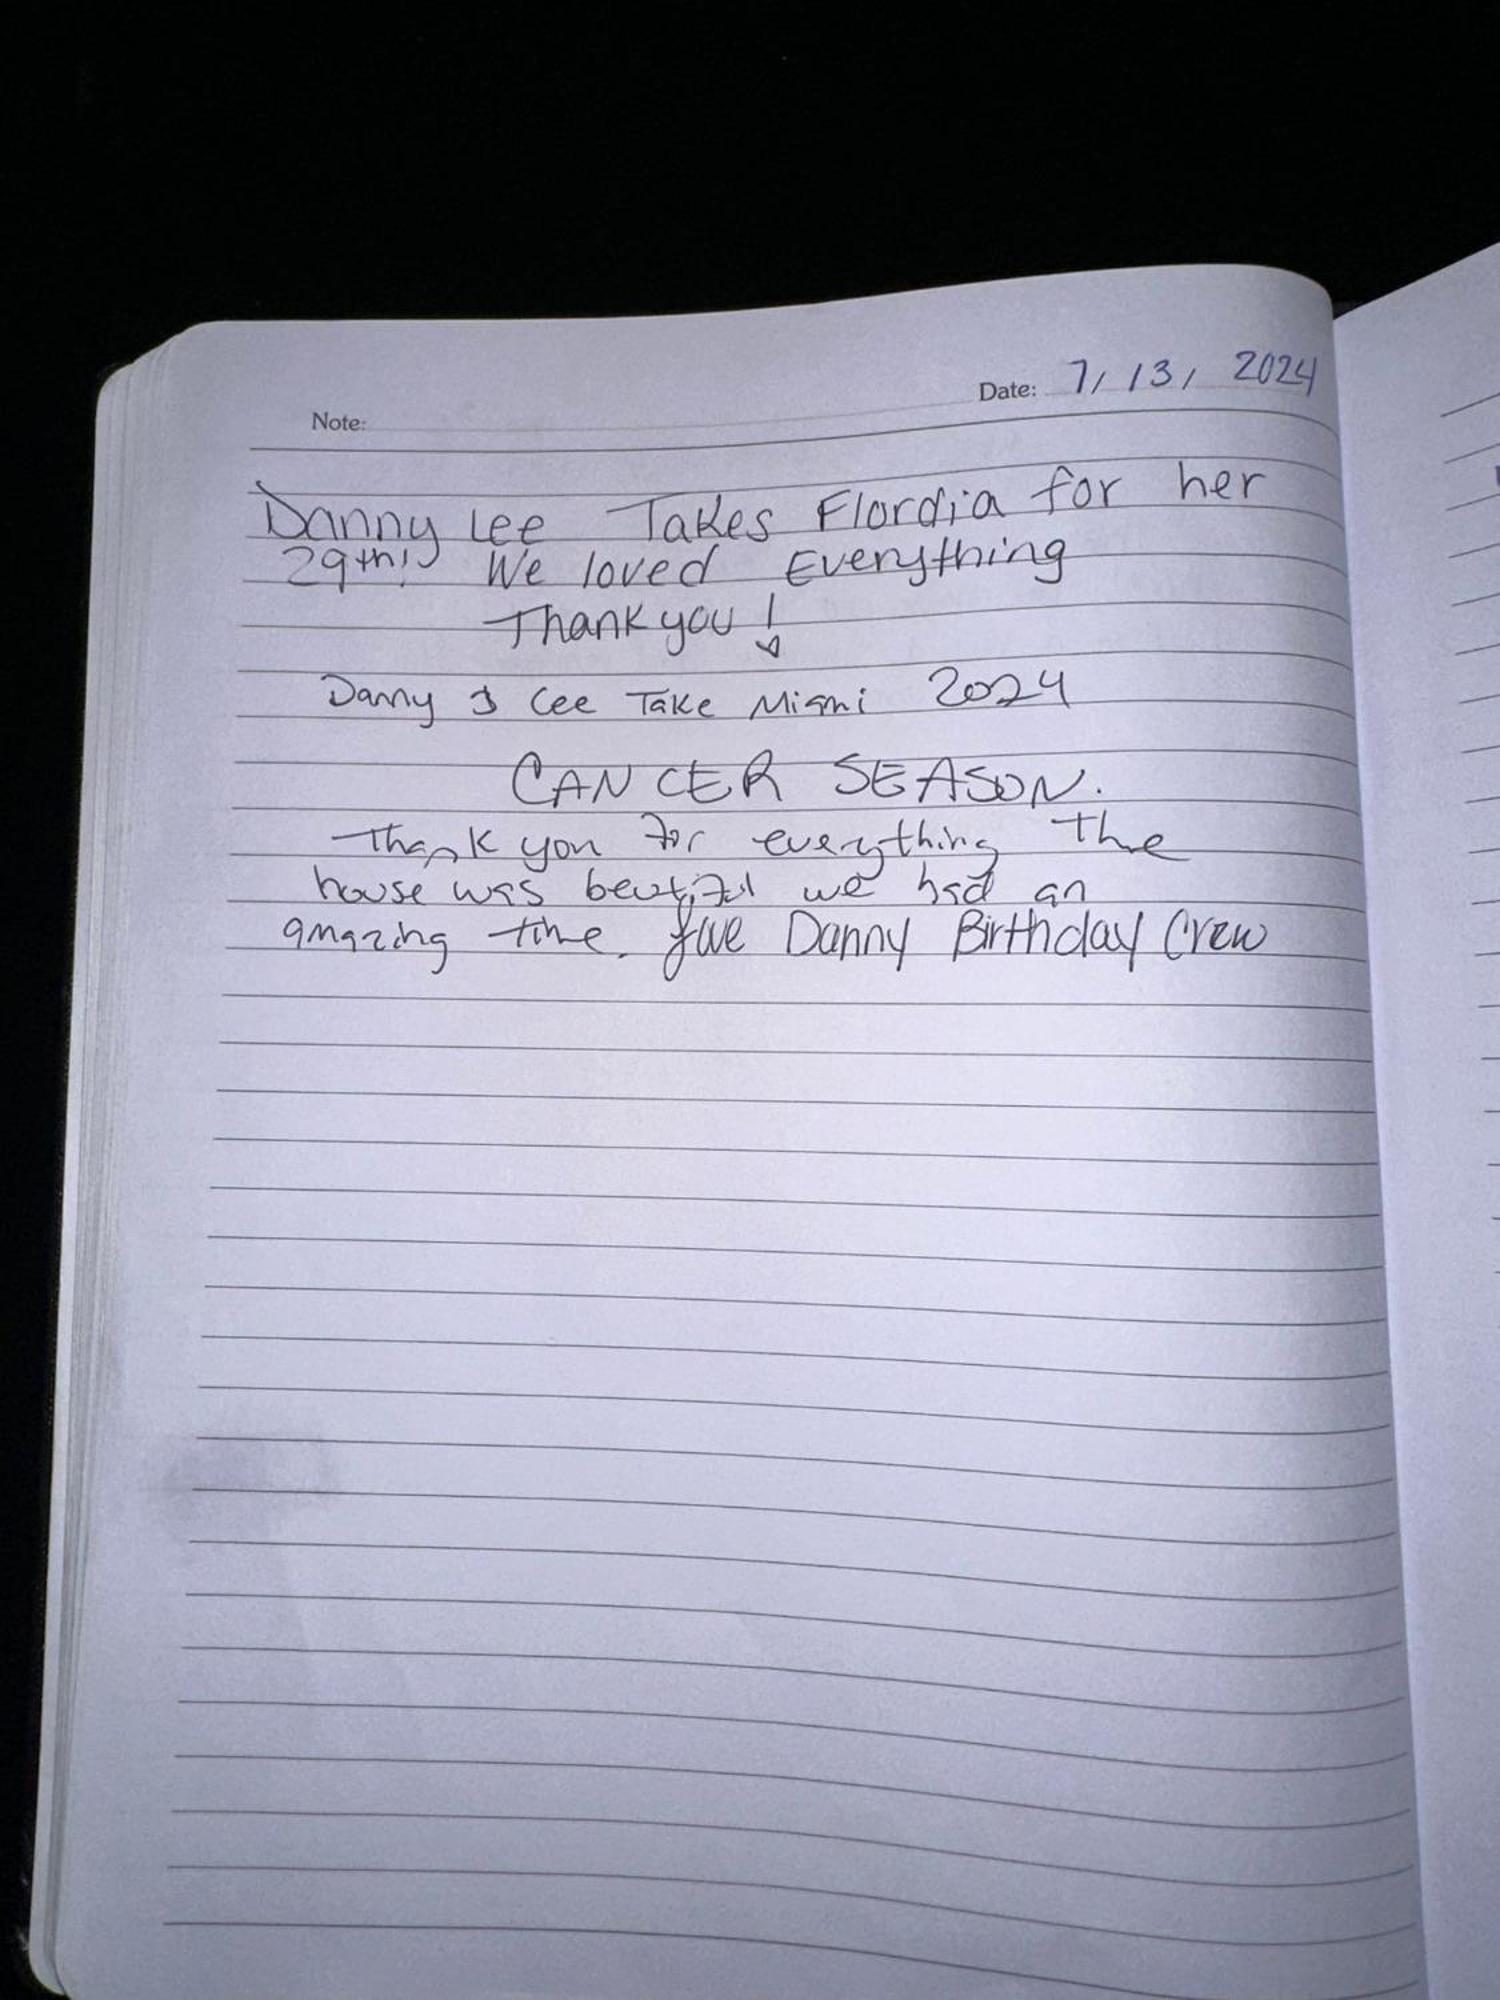 Date: 7/13/ 2024
Note:
Danny Lee Takes Flordia for her
29th! We loved Everything
Thank you!
Danny & Cee Take Miami 2024
CANCER SEASON.
Thank you for everything the
house was beutiful we had an
amazing time. Danny Birthday Crew